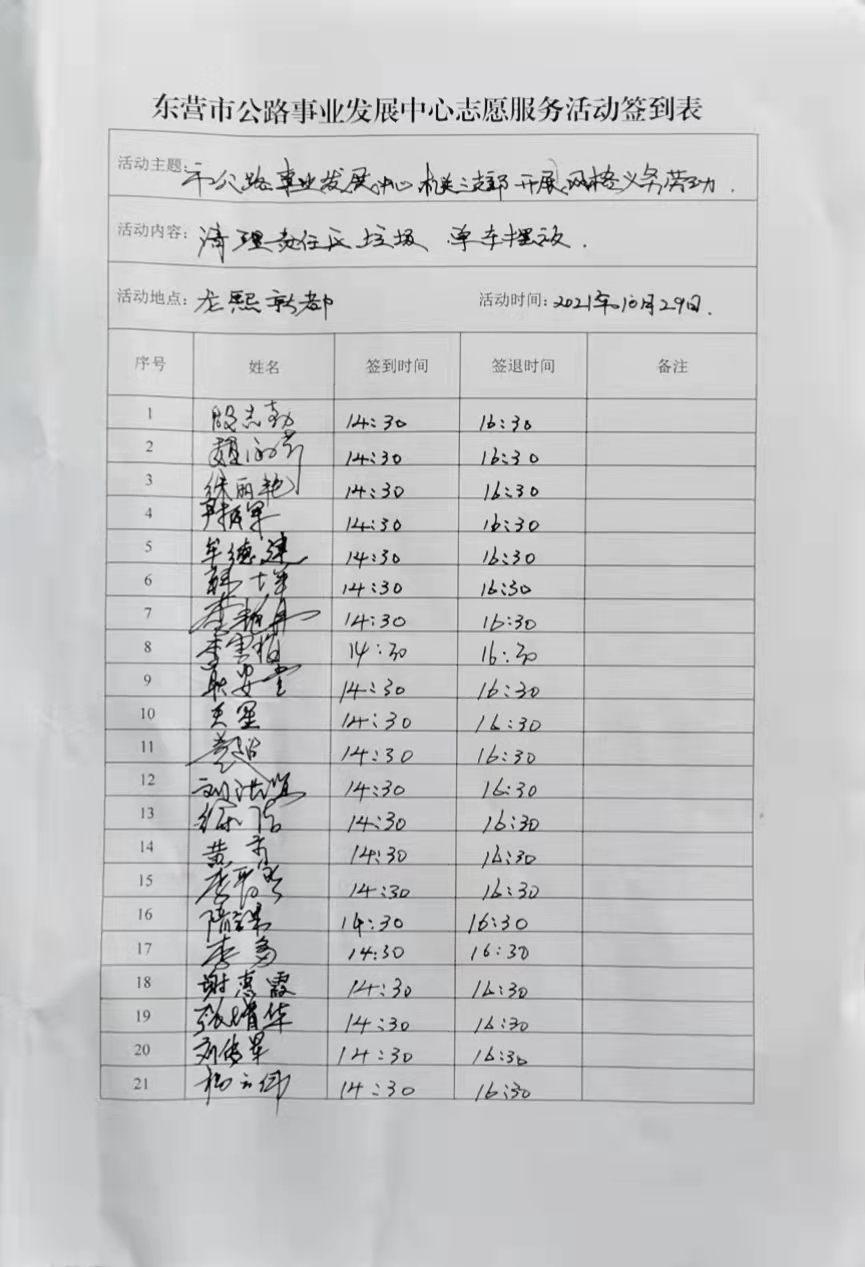 东营市公路事业发展中心志愿服务活动签到表
活动主题: 市公路事业发展中心机关三支部开展网格义务劳动.
活动内容: 清理责任区垃圾 单车摆放.
活动地点: 龙熙新都 活动时间: 2021年10月29日.
序号 姓名 签到时间 签退时间 备注
1 殷志勃 14:30 16:30
2 14:30 16:30
3 徐丽艳 14:30 16:30
4 尹振军 14:30 16:30
5 牟德建 14:30 16:30
6 韩 14:30 16:30
7 李艳丹 14:30 16:30
8 李雪梅 14:30 16:30
9 耿安堂 14:30 16:30
10 吴星 14:30 16:30
11 14:30 16:30
12 刘洪 14:30 16:30
13 14:30 16:30
14 黄 14:30 16:30
15 李 14:30 16:30
16 隋 14:30 16:30
17 李多 14:30 16:30
18 谢惠霞 14:30 16:30
19 张增华 14:30 16:30
20 刘传军 14:30 16:30
21 杨云 14:30 16:30